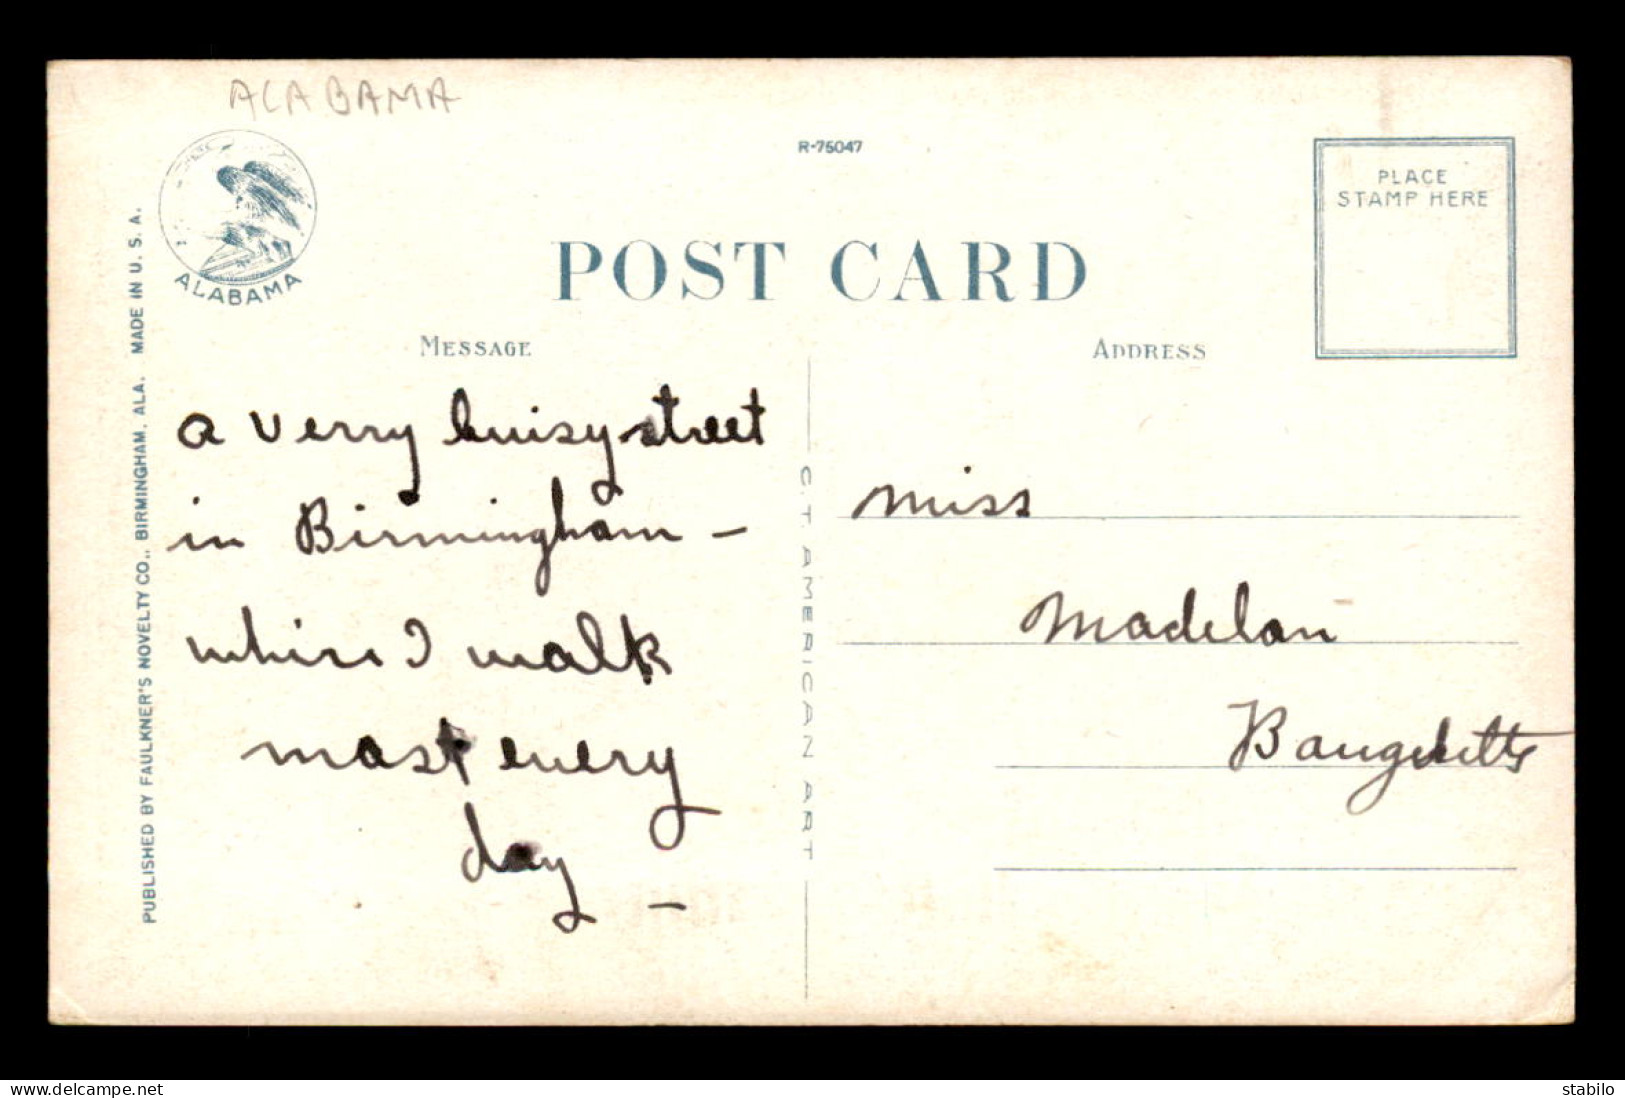 ALABAMA
R-75047
PLACE
STAMP HERE
ALABAMA
POST CARD
MESSAGE
ADDRESS
PUBLISHED BY FAULKNER'S NOVELTY CO., BIRMINGHAM, ALA. MADE IN U. S. A.
C. T. AMERICAN ART
a verry buisy street
in Birmingham –
where I walk
most every
day –
Miss
Madelon
delcampe.net
stabilo